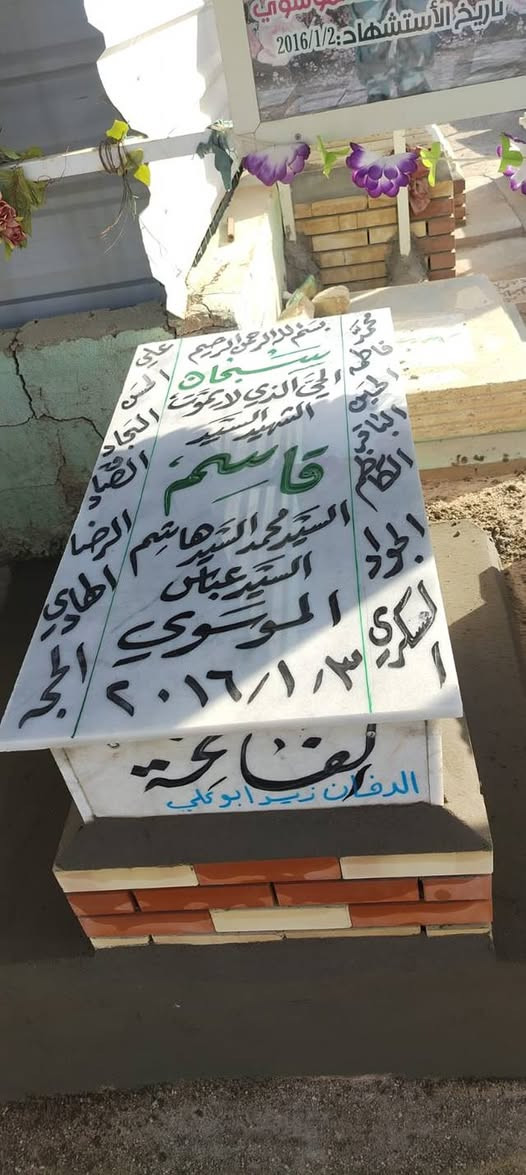 الموسوي
تاريخ الأستشهاد:2016/1/2
بسم الله الرحمن الرحيم
سبحان
الحي الذي لا يموت
الشهيد السيد
قاسم
السيد محمد السيد هاشم
السيد عباس
الموسوي
٢٠١٦/١/٣
محمد
فاطمة
الحسين
الباقر
الكاظم
الجواد
العسكري
علي
الحسن
السجاد
الصادق
الرضا
الهادي
الحجة
الفاتحة
الدفان زيد ابو علي